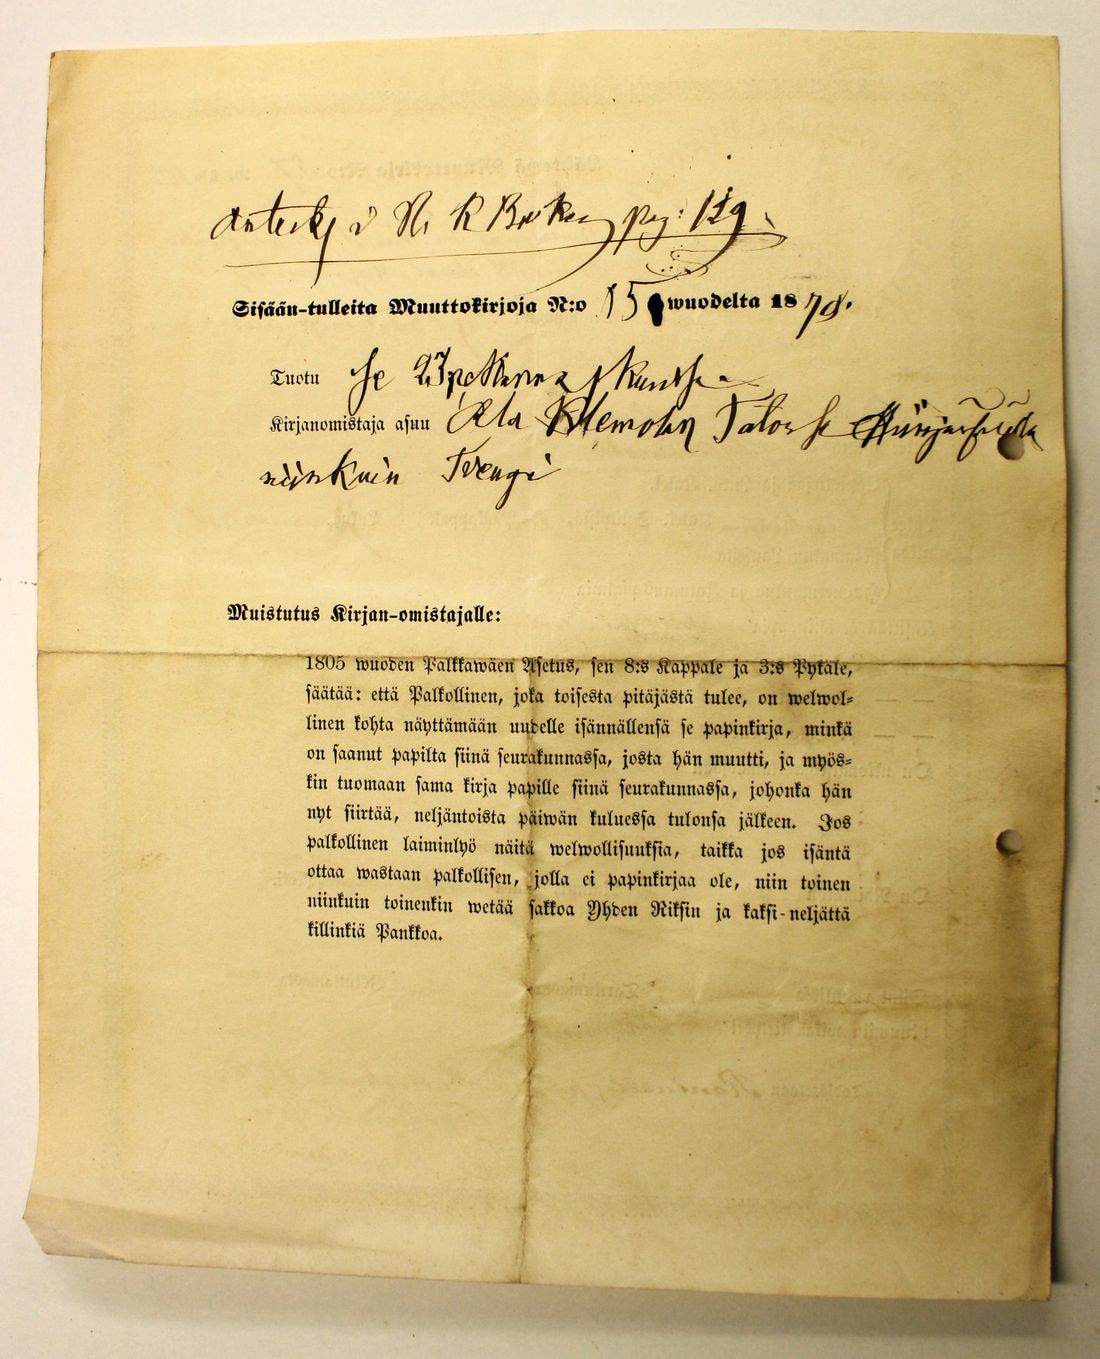 Sisään-tulleita Muuttokirjoja N:o 15 wuodelta 1878.
Tuotu se 23
Kirjanomistaja asuu Ala Talossa
niinkuin Trengi
Muistutus Kirjan-omistajalle:
1805 wuoden Palkkawäen Asetus, sen 8:s Kappale ja 3:s Pykäle,
säätää: että Palkollinen, joka toisesta pitäjästä tulee, on welwol-
linen kohta näyttämään uudelle isännällensä se papinkirja, minkä
on saanut papilta siinä seurakunnassa, josta hän muutti, ja myös-
kin tuomaan sama kirja papille siinä seurakunnassa, johonka hän
nyt siirtää, neljäntoista päiwän kuluessa tulonsa jälkeen. Jos
palkollinen laiminlyö näitä welwollisuuksia, taikka jos isäntä
ottaa wastaan palkollisen, jolla ei papinkirjaa ole, niin toinen
niinkuin toinenkin wetää sakkoa Yhden Riksin ja kaksi-neljättä
killinkiä Pankkoa.